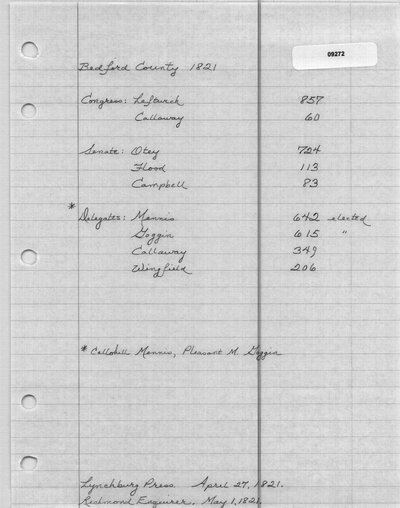 09272
Bedford County 1821
Congress: Leftwich 857
Callaway 60
Senate: Otey 724
Flood 113
Campbell 83
* Delegates: Mennis 642 elected
Goggin 615 "
Callaway 349
Wingfield 206
* Callohill Mennis, Pleasant M. Goggin
Lynchburg Press. April 27, 1821.
Richmond Enquirer, May 1, 1821.